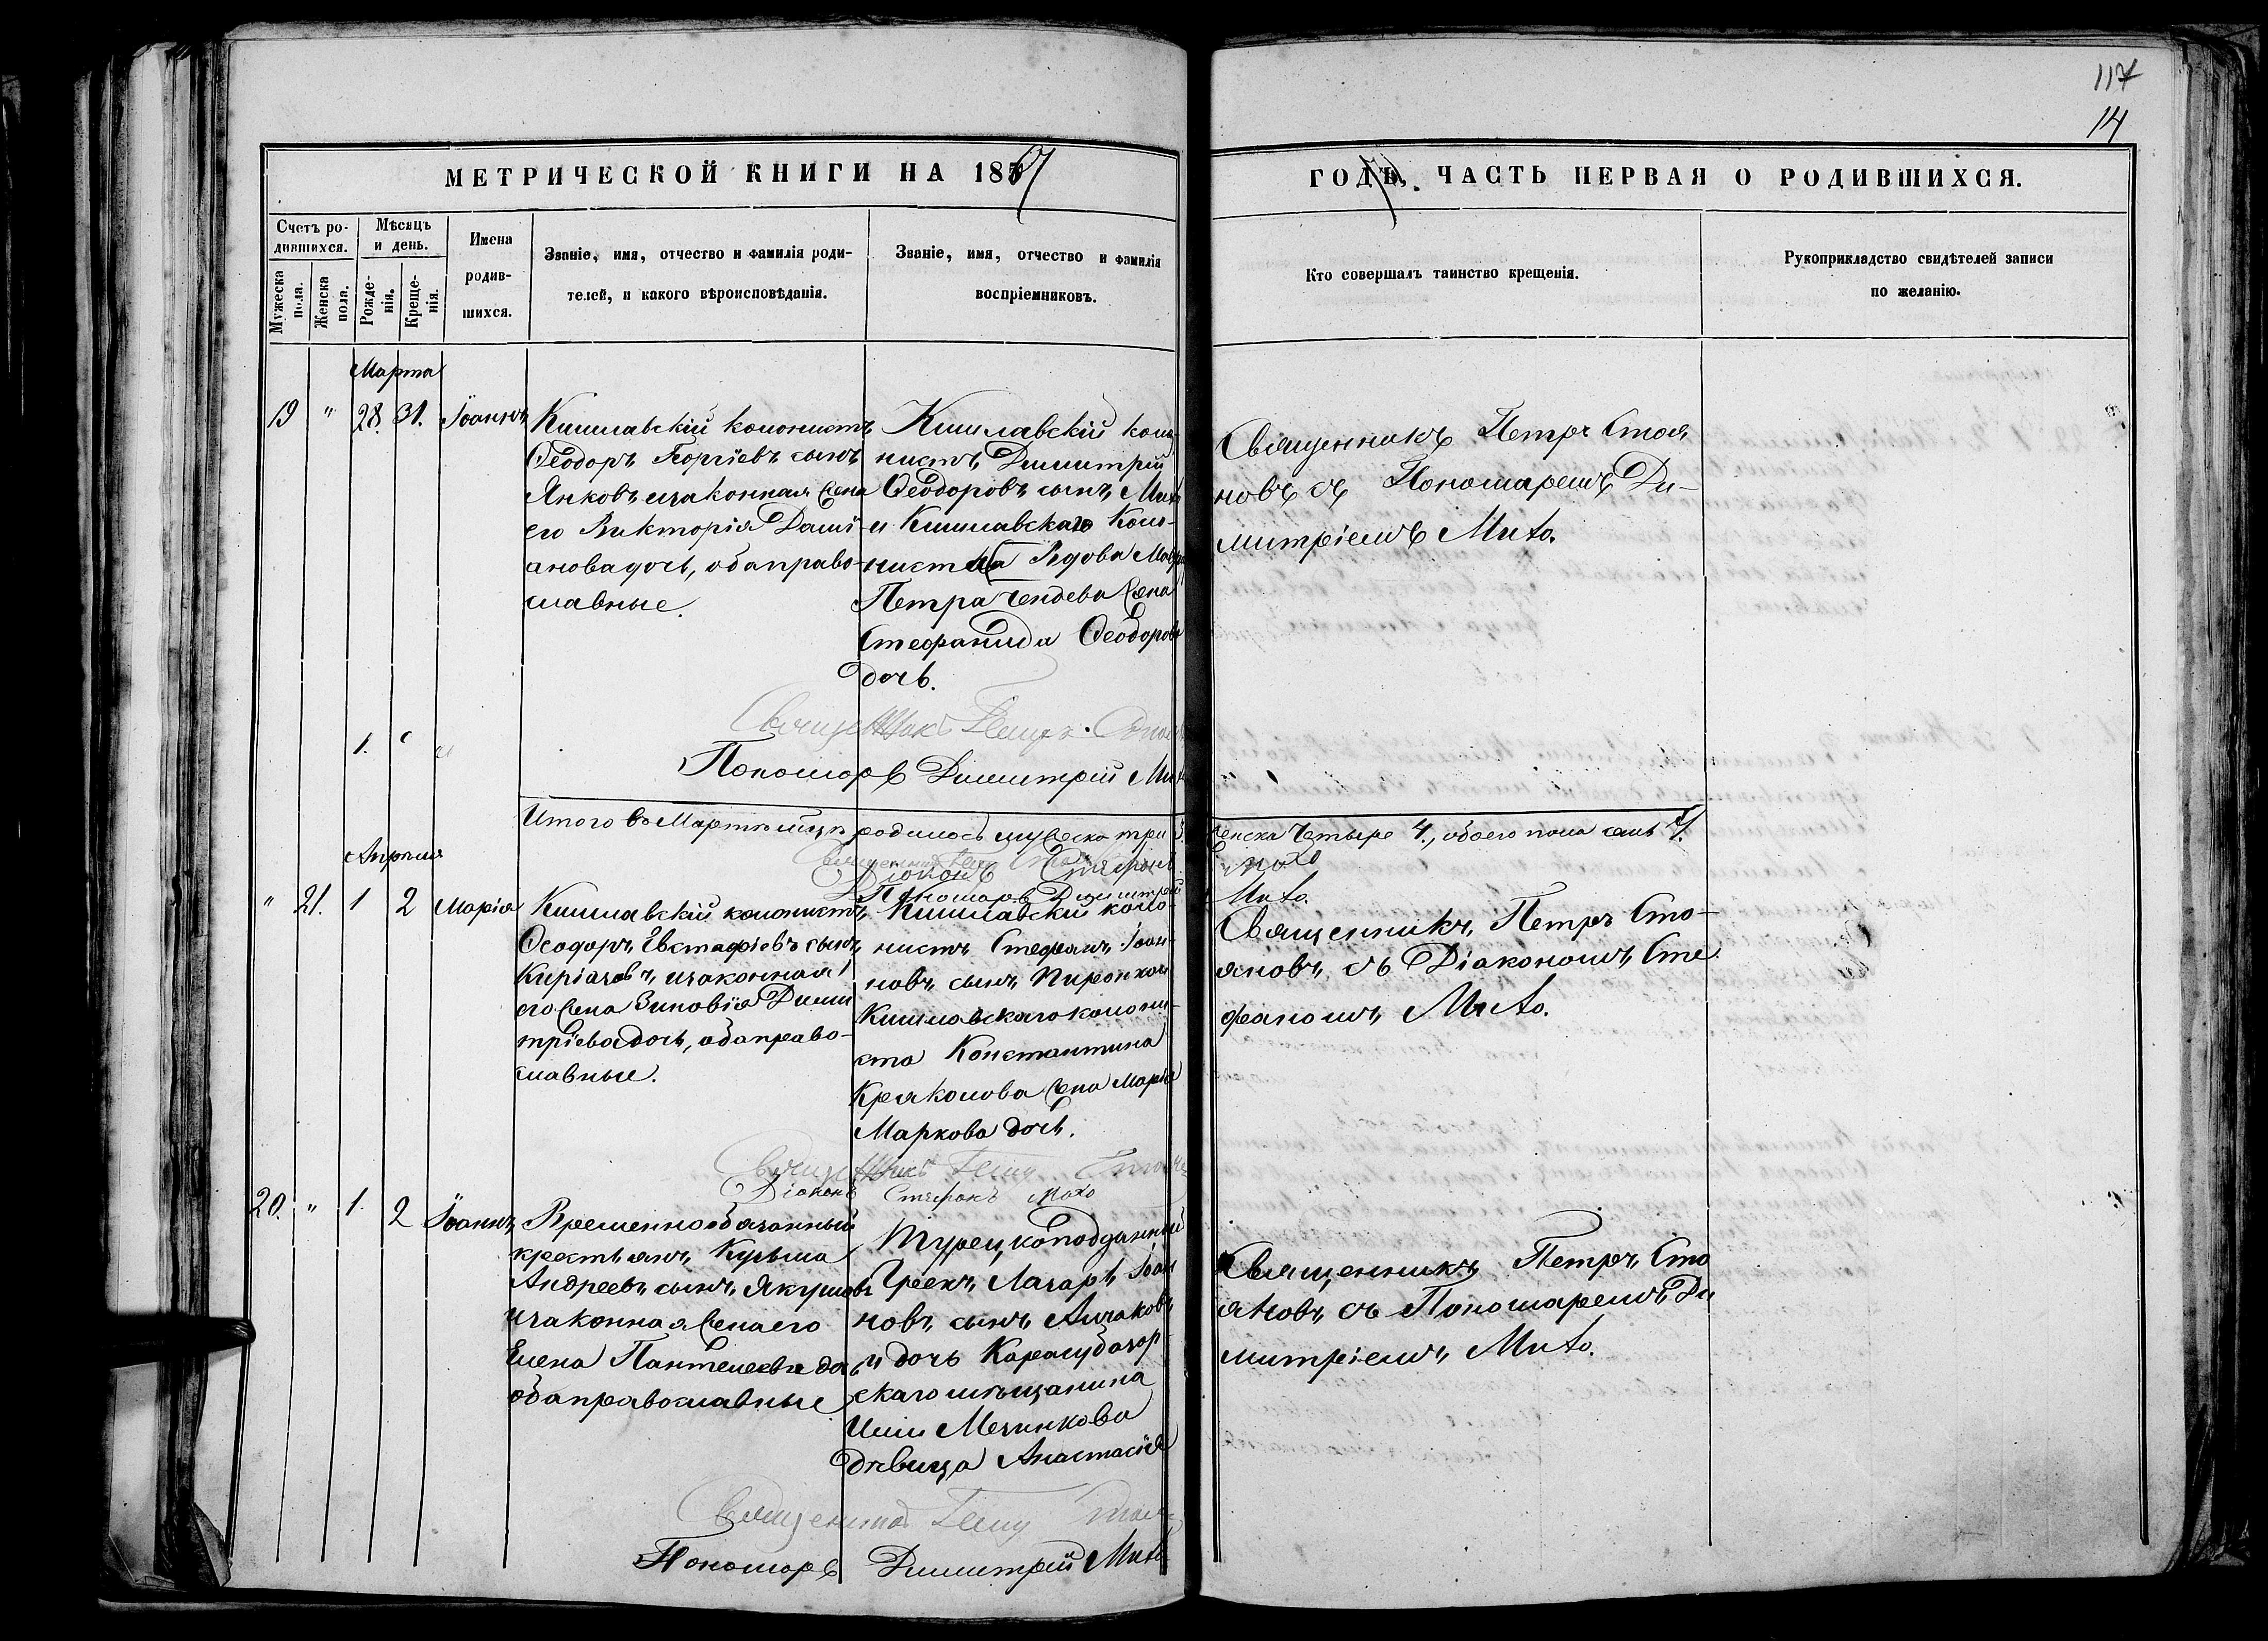 117
14
МЕТРИЧЕСКОЙ КНИГИ НА 1867 ГОДЪ, ЧАСТЬ ПЕРВАЯ О РОДИВШИХСЯ.
Счетъ ро-
дившихся.
Мужеска
пола.
Женска
пола.
Мѣсяцъ
и день.
Рожде-
нія.
Креще-
нія.
Имена
родив-
шихся.
Званіе, имя, отчество и фамилія роди-
телей, и какого вѣроисповѣданія.
Званіе, имя, отчество и фамилія
воспріемниковъ.
Кто совершалъ таинство крещенія.
Рукоприкладство свидѣтелей записи
по желанію.
Марта
19 " 28. 31. Іоаннъ
Кишлавскій колонистъ
Ѳеодоръ Георгіевъ сынъ
Янковъ и законная жена
его Викторія Дамі-
анова дочь, оба право-
славные.
Кишлавскій коло-
нистъ Димитрій
Ѳеодоровъ сынъ
и Кишлавскаго Коло-
ниста Вдова
Петра жена
Стефанида Ѳеодорова
дочь.
Священникъ Петръ Стоя
новъ съ Пономаремъ Ди-
митріемъ Мито.
Священникъ Петръ
Пономарь Димитрій
1.
Итого въ Мартѣ мѣсяцѣ родилось мужеска три 3. женска Четыре 4., обоего пола семь 7.
Священникъ
Діаконъ Стефанъ
Пономарь Димитрій Мито.
Апрѣля
" 21. 1 2 Марія
Кишлавскій колонистъ
Ѳеодоръ Евстафіевъ сынъ
Киріазовъ, и законная
его жена Зиновія Дими
тріева дочь, оба право-
славные.
Кишлавскій коло-
нистъ Стефанъ Іоан-
новъ сынъ
Кишлавскаго колони-
ста Константина
жена Марія
Маркова дочь.
Священникъ Петръ Сто-
яновъ съ Діакономъ Сте
фаномъ Мито.
Священникъ Петръ
Діаконъ Стефанъ
20. " 1. 2 Іоаннъ
Временнообязанный
крестьянъ Кузьма
Андреевъ сынъ Якушовъ
и законная жена его
Елена Пантелеева доч
оба православные
Турецкоподданный
Грекъ Лазарь Іоан
новъ сынъ
и дочь Карасубазар-
скаго мѣщанина
Ильи Мечникова
дѣвица Анастасія
Священникъ Петръ Сто
яновъ съ Пономаремъ Ди
митріемъ Мито.
Священникъ Петръ
Пономарь Димитрій Мито